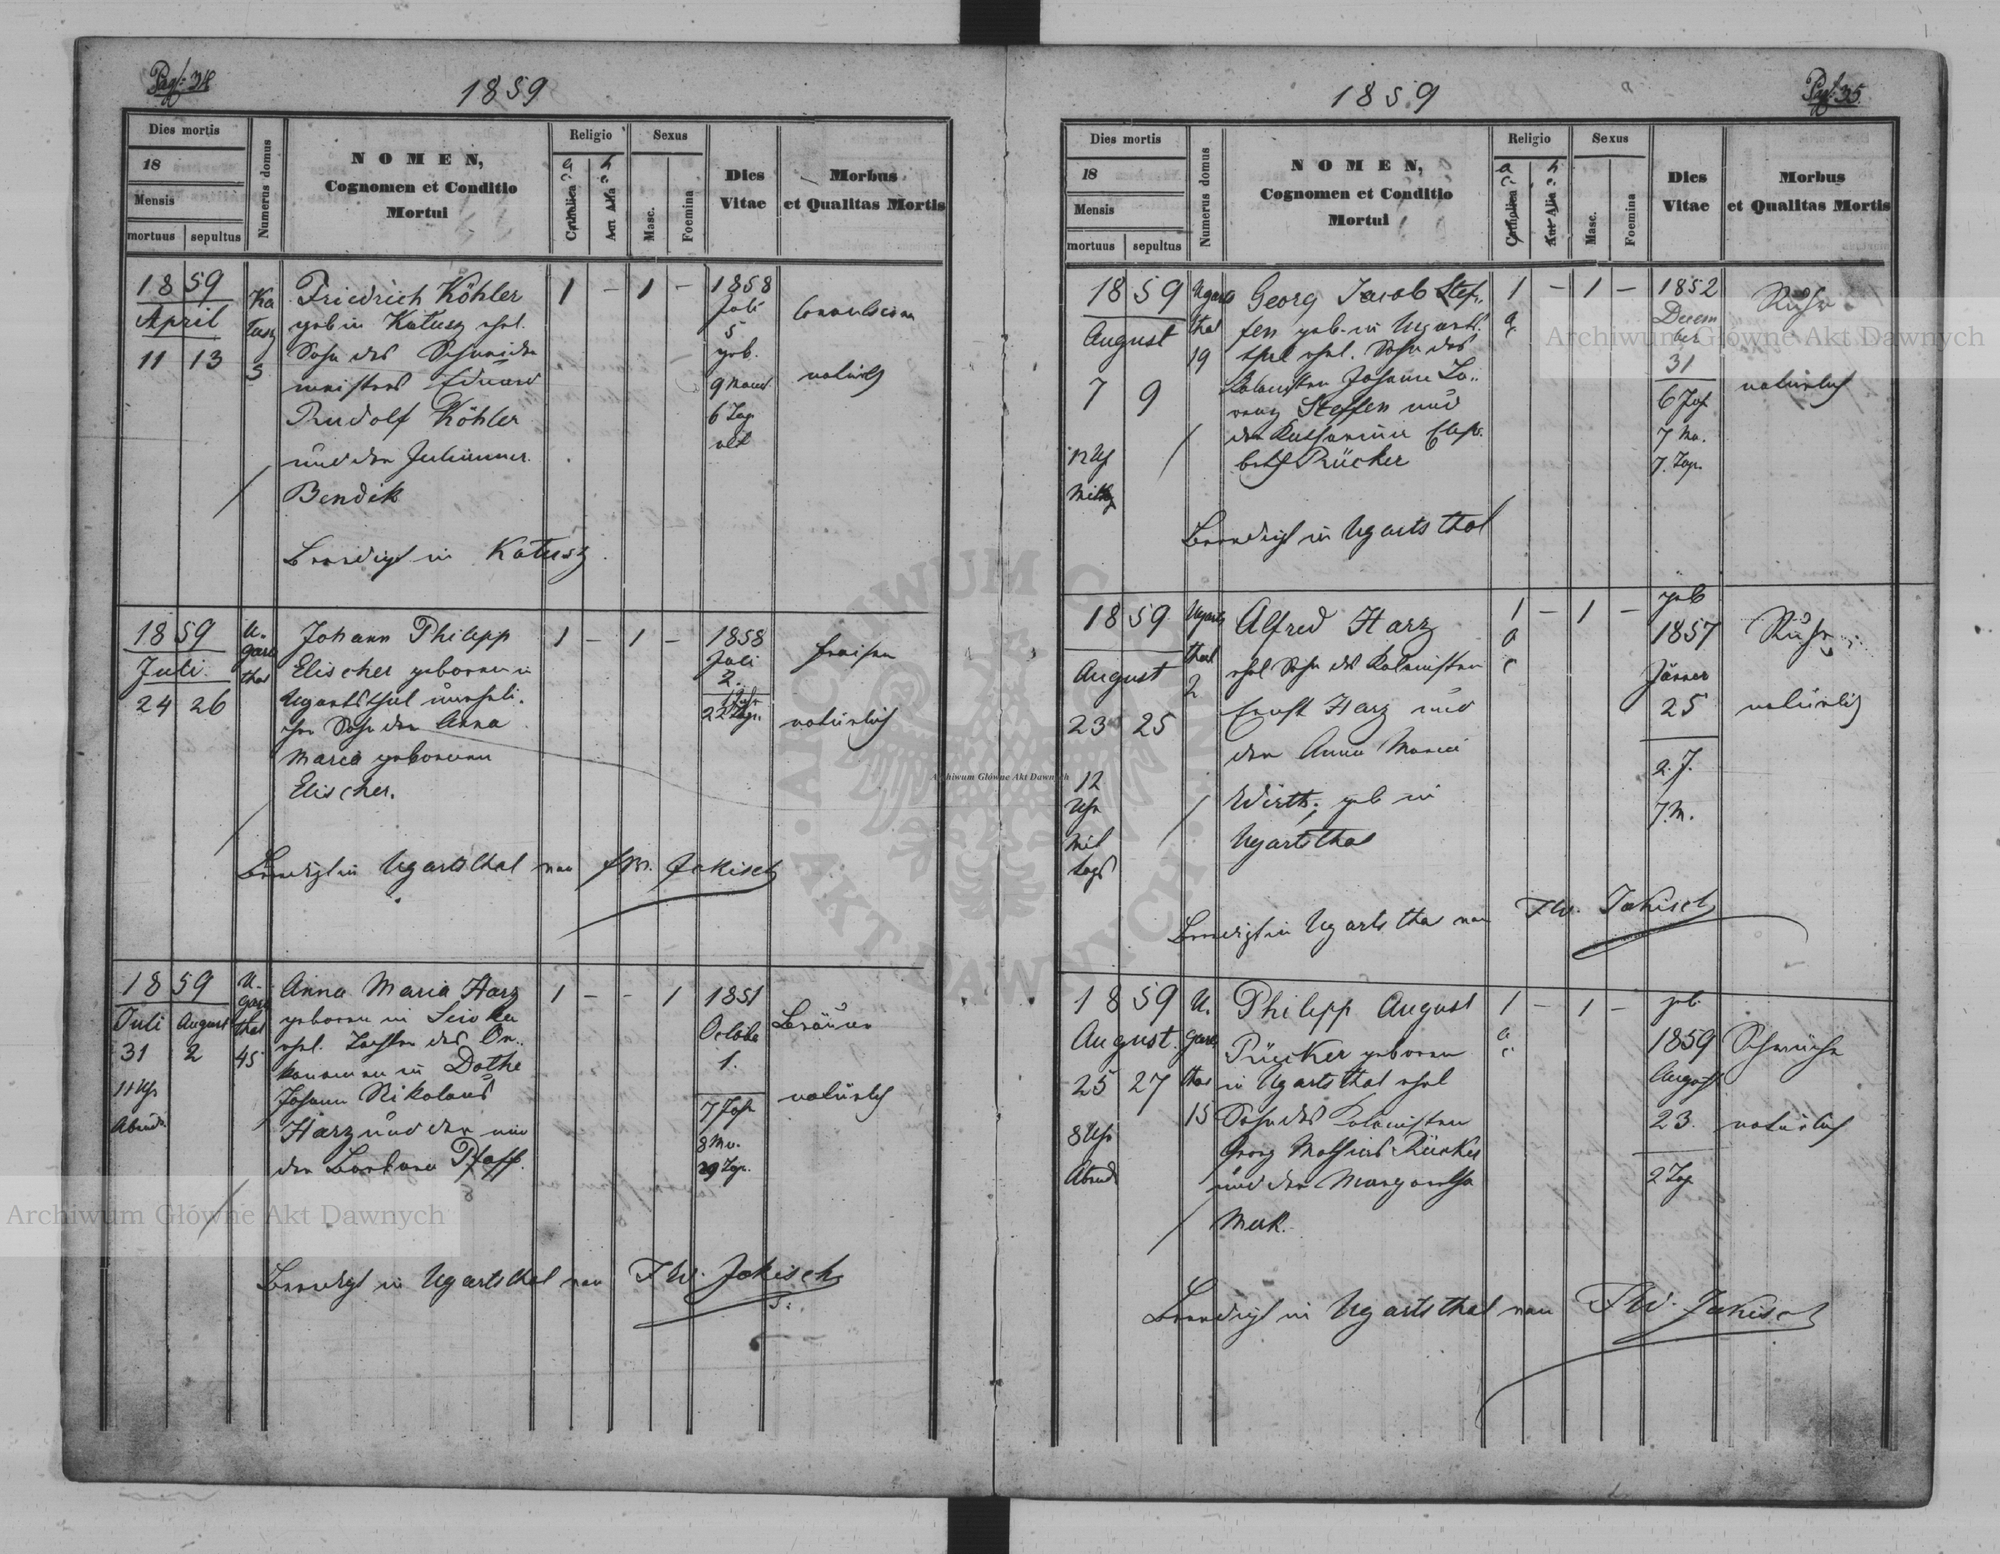 Pag: 34
1859
Dies mortis
18
Mensis
mortuus sepultus
Numerus domus
NOMEN,
Cognomen et Conditio
Mortui
Religio
a. c.
Catholica
a. h.
Aut Alia
Sexus
Masc.
Foemina
Dies
Vitae
Morbus
et Qualitas Mortis
1859
April
11 13
Ka
tusz
3
Friedrich Köhler
geb in Katusz ehel.
Sohn des Schneider
meisters Eduard
Rudolf Köhler
und der Julianna
Bendik
Beerdigt in Katusz
1 - 1 -
1858
Juli
5
geb.
9 Monat
6 Tage
alt
Convulsion
natürlich
1859
Juli
24 26
U-
garts
thal
Johann Philipp
Elischer geboren in
Ugartsthal unehli-
cher Sohn der Anna
Maria geborenen
Elischer.
1 - 1 -
1858
Juli
2.
1 Jahr
22 Tage.
Fraisen
natürlich
Beerdigt in Ugartsthal von F.W. Jakisch
1859
Juli August
31 2
11 Uhr
Abends
U-
garts
thal
45
Anna Maria Harz
geboren in
ehel. Tochter des Oe-
konomen in Dolhe
Johann Nikolaus
Harz und der
der Barbara Pfaff.
1 - - 1
1851
October
1.
7 Jahr
8 Mo.
29 Tage.
Bräune
natürlich
Beerdigt in Ugartsthal von F.W. Jakisch
Pag: 35.
1859
Dies mortis
18
Mensis
mortuus sepultus
Numerus domus
NOMEN,
Cognomen et Conditio
Mortui
Religio
a. c.
Catholica
a. h.
Aut Alia
Sexus
Masc.
Foemina
Dies
Vitae
Morbus
et Qualitas Mortis
1859
August
7 9
12 Uhr
Mittag
Ugarts
thal
19
Georg Jacob Stef-
fen geb. in Ugarts
thal ehel. Sohn des
Kolonisten Johann Lo-
renz Steffen und
der Katharina Elisa-
beth Rücker
Beerdigt in Ugartsthal
1 - 1 -
a. c.
1852
Decem
ber
31
6 Jah
7 Mo.
7. Tage.
Ruhr
natürlich
1859
August
23 25
12
Uhr
Mit
tags
Ugarts
thal
2
Alfred Harz
ehel Sohn des Kolonisten
Ernst Harz und
der Anna Maria
Wirth; geb in
Ugartsthal
1 - 1 -
a c
geb
1857
Jänner
25
2. J.
7. M.
Ruhr
natürlich
Beerdigt in Ugartsthal von F.W. Jakisch
1859
August
25 27
8 Uhr
Abends
U.
garts
thal
15
Philipp August
Rücker geboren
in Ugartsthal ehel
Sohn des Kolonisten
Georg Mathias Rücker
und der Margaretha
Merk.
1 - 1 -
a. c.
geb
1859
August
23.
2 Tag
Schwäche
natürlich
Beerdigt in Ugartsthal von F.W. Jakisch
Archiwum Główne Akt Dawnych
Archiwum Główne Akt Dawnych
Archiwum Główne Akt Dawnych